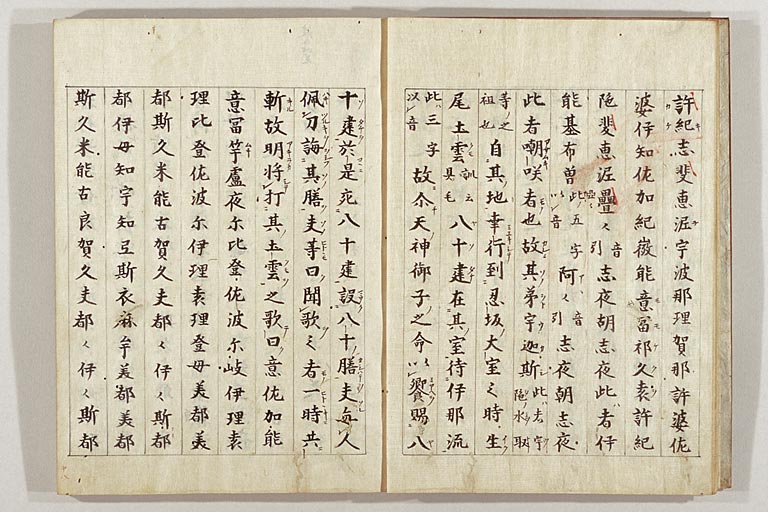 許紀志斐恵泥宇波那理賀那許婆佐
婆伊知佐加紀微能意冨祁久袁許紀
陁斐恵泥疊〻音引志夜胡志夜此者伊
能碁布曽此五字以音阿〻音引志夜胡志夜
此者嘲咲者也故其苐宇迦斯此者宇陁水取
等之祖也自其地幸行到忍坂大室之時生
尾土雲訓云具毛八十建在其室待伊那流
此三字以音故尒天神御子之命以饗賜八
十建於是宛八十建設八十膳夫每人
佩刀誨其膳夫等曰聞歌之者一時共
斬故明將打其土雲之歌曰意佐加能
意冨牟盧夜尓比登佐波尓岐伊理袁
理比登佐波尓伊理袁理登母美都美
都斯久米能古賀久夫都〻伊〻斯都
都伊母知宇知弖斯衣麻牟美都美都
斯久米能古良賀久夫都〻伊〻斯都